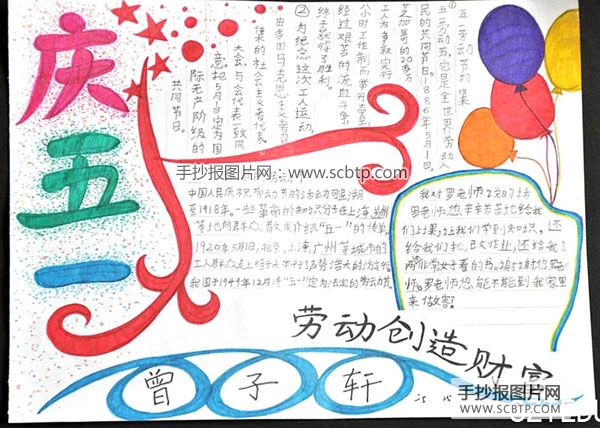 庆五一
五一劳动节的来
①五一劳动节,它是全世界劳动人
民的共同节日。1886年5月1日,
芝加哥的20多万
工人为争取实行
八小时工作制而举行
经过艰苦的流血斗争
终于获得了胜利。
②为纪念这次工人运动,
集的社会主义者代表
大会,与会代表一致同
意把5月1日定为国
际无产阶级的
共同节日。
手抄报图片网:
www.scbtp.com
中国人民庆祝劳动节的活动可追溯
至1918年。一些革命的知识分子在上海、
等地向群众散发介绍“五一”的传单。
1920年5月1日,北京、上海、广州等城市的
工人群众走上街头
我国于1949年12月将“五一”定为法定的劳动节
我对罗老师
罗老师您辛辛苦苦地给我
们上课,让我们学到知识,还
给我们
罗老师您能不能到我家里
来做客?
劳动创造财富
曾子轩
手抄报图片网:
www.scbtp.com